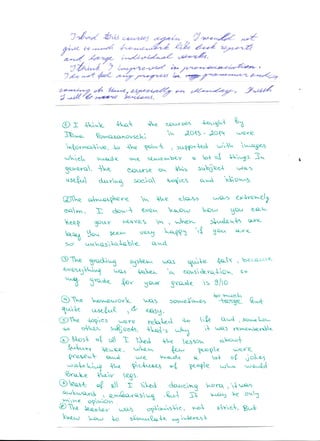 I had this courses again, I would not
give so much homework like book reports
and large individual works.
I think I improved in pronounciation.
I do not feel any progress in my grammar and
coming on time, especially on Monday. I wish
I will be more serious.
① I think that the courses taught by
Irina Pomazanovschi in 2013 - 2014 were
informative, to the point, supported with images
which made me remember a lot of things. In
general, the course on this subject was
useful during social topics and idioms
② The atmosphere in the class was extremely
calm. I don't even know how you can
keep your nerves in, when students are
lazy. You seem very happy if you are
so unhesitatable and
③ The grading system was quite fair, because
everything was taken in consideration, so
my grade for your grade is 9/10
④ The homework was sometimes to much large, but
quite useful & easy.
⑤ The topics were related to life and somehow
to other subjects, that's why it was rememberable
⑥ Most of all I liked the lesson about
future tense, when few people were
present and we made a lot of jokes
watching the pictures of people who would
brake their legs.
⑦ Least of all I liked dancing hora, it was
awkward, embarassing, but It may be only
mine opinion
⑧ The teacher was optimistic, not strict, But
knew how to stimulate my interest